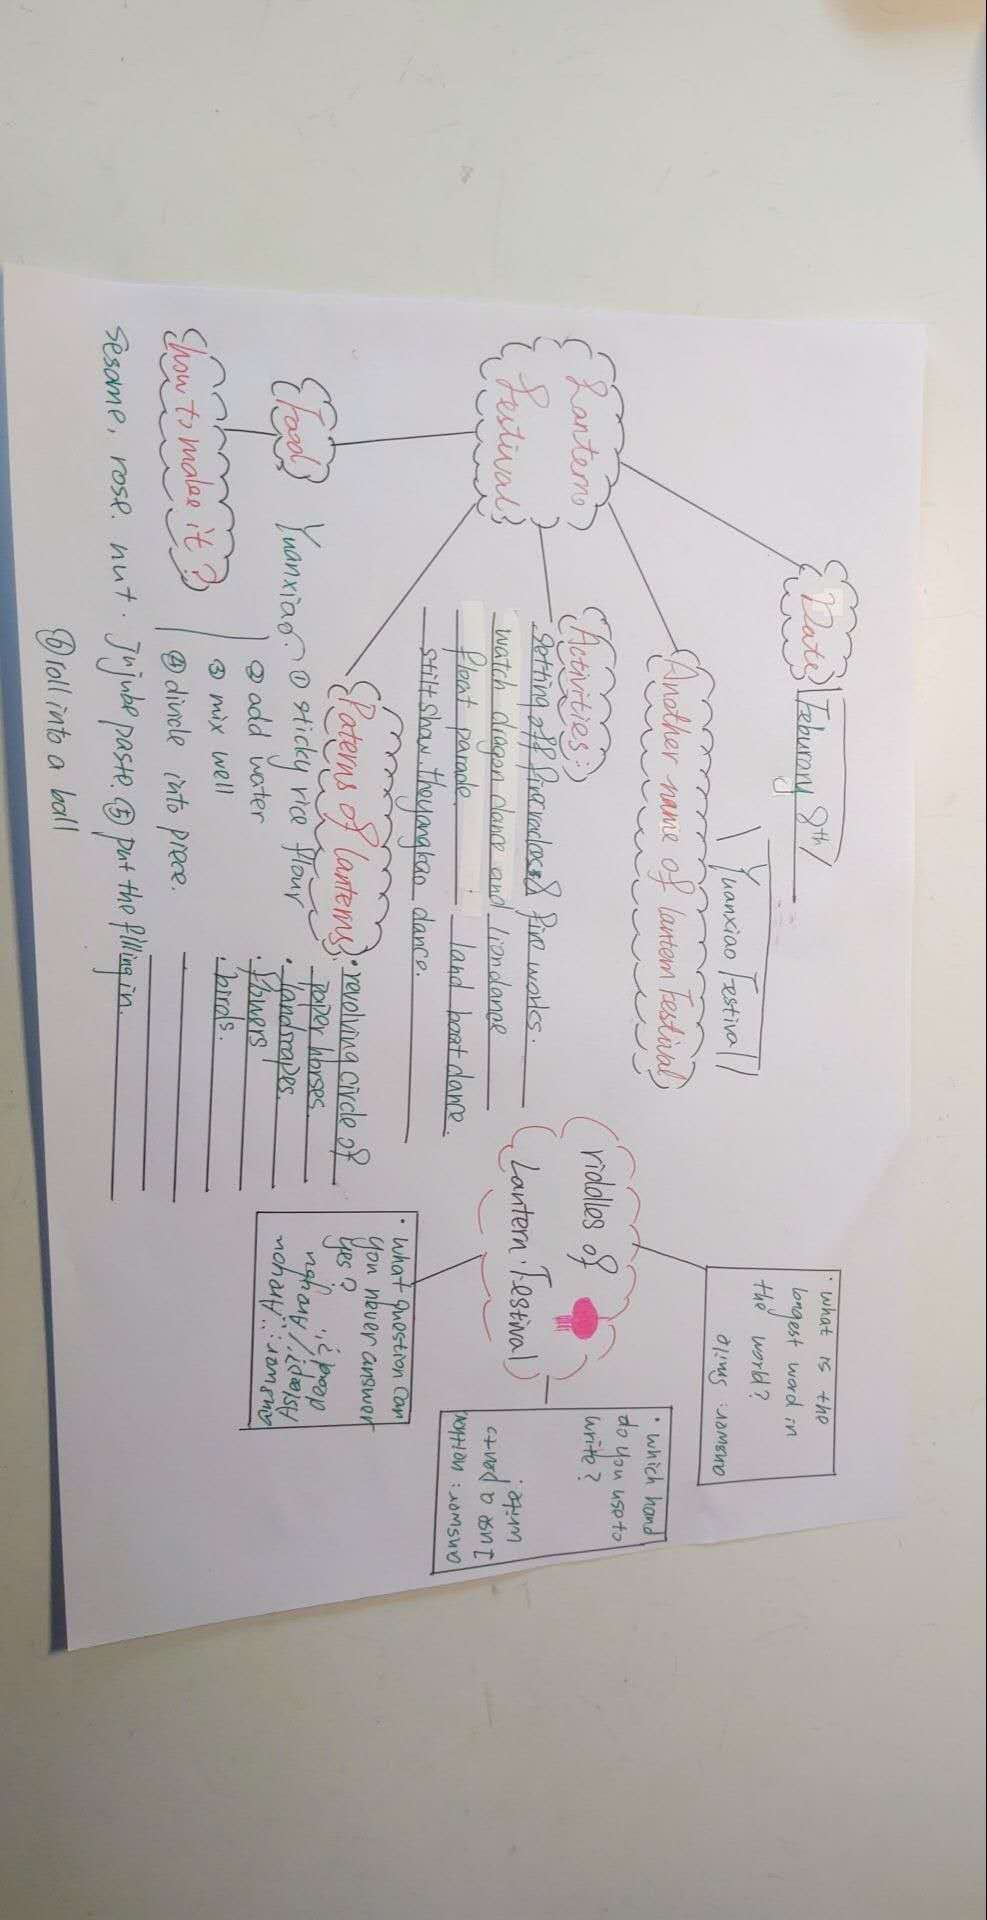 Date
Feburary 8th
Yuanxiao Festival
Another name of lantern Festival
Lantern
festival
Activities:
setting off firecrackers & fire works.
watch dragon dance and lion dance
float parade land boat dance.
stilt show. the yangkao dance.
Food
Paterns of lanterns
• revolving circle of
paper horses.
• landscapes.
• flowers
• birds.
Yuanxiao: ① sticky rice flour
② add water
③ mix well
④ divide into piece.
how to make it?
sesame, rose. nut. Jujube paste. ⑤ put the filling in.
⑥ roll into a ball
riddles of
Lantern Festival
• what is the
longest word in
the world?
answer: smile
• which hand
do you use to
write?
answer: neither
I use a pen to
write.
• What question can
you never answer
yes?
answer: "Are you
Asleep?"/Are you
dead?"